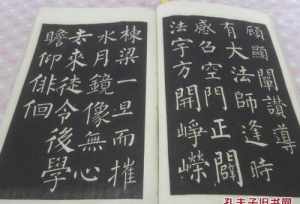 顧顯闡讃導
有大法師逢時
感召空門正闢
法宇方開崢嶸
棟梁一旦而摧
水月鏡像無心
去來徒令後學
瞻仰俳佪
孔夫子旧书网